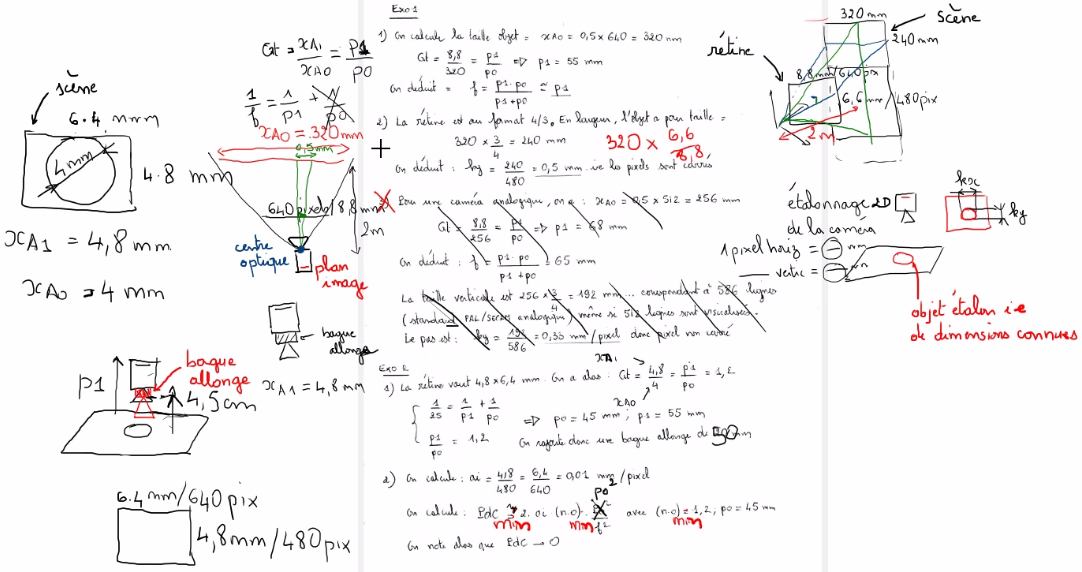 scène
6.4 mm
4mm
4.8 mm
xA1 = 4,8mm
xA0 = 4 mm
p1
bague
allonge
4,5cm
6.4 mm/640 pix
4,8mm/480pix
Gt = xA1/xA0 = p1/p0
1/f = 1/p1 + 1/p0
xA0 = 320 mm
0,5mm
640 pixels/8,8 mm
2m
centre
optique
plan
image
bague
allonge
xA1 = 4,8 mm
Exo 1
1) On calcule la taille objet = xA0 = 0,5 x 640 = 320 mm
Gt = 8,8/320 = p1/p0 => p1 = 55 mm
On déduit = f = p1·p0/(p1+p0) ≈ p1
2) La rétine est au format 4/3. En largeur, l'objet a pour taille =
320 x 3/4 = 240 mm
320 x 6,6/8,8
On déduit : ky = 240/480 = 0,5 mm i.e les pixels sont carrés
Pour une caméra analogique, on a : xA0 = 0,5 x 512 = 256 mm
Gt = 8,8/256 = p1/p0 => p1 = 68 mm
On déduit : f = p1·p0/(p1+p0) = 65 mm
La taille verticale est 256 x 3/4 = 192 mm... correspondant à 586 lignes
(standard PAL/SECAM analogique) même si 512 lignes sont visualisées.
Le pas est : ky = 192/586 = 0,33 mm/pixel donc pixel non carré
Exo 2
1) La rétine vaut 4,8 x 6,4 mm. On a alors : Gt = 4,8/4 = p1/p0 = 1,2
xA1
xA0
1/25 = 1/p1 + 1/p0 => p0 = 45 mm ; p1 = 55 mm
p1/p0 = 1,2 On rajoute donc une bague allonge de 30 mm
2) On calcule : ai = 4,8/480 = 6,4/640 = 0,01 mm/pixel
p0²
On calcule : PdC = 2. ai (n.o). /f² avec (n.o) = 1,2 ; p0 = 45 mm
min mm min
On note alors que PdC → 0
320 mm
scène
240 mm
rétine
8,8 mm/640pix
6,6 mm/480pix
2m
étalonnage 2D
de la caméra
kx
ky
1 pixel horiz = mm
vertic = mm
objet étalon i.e
de dimensions connues